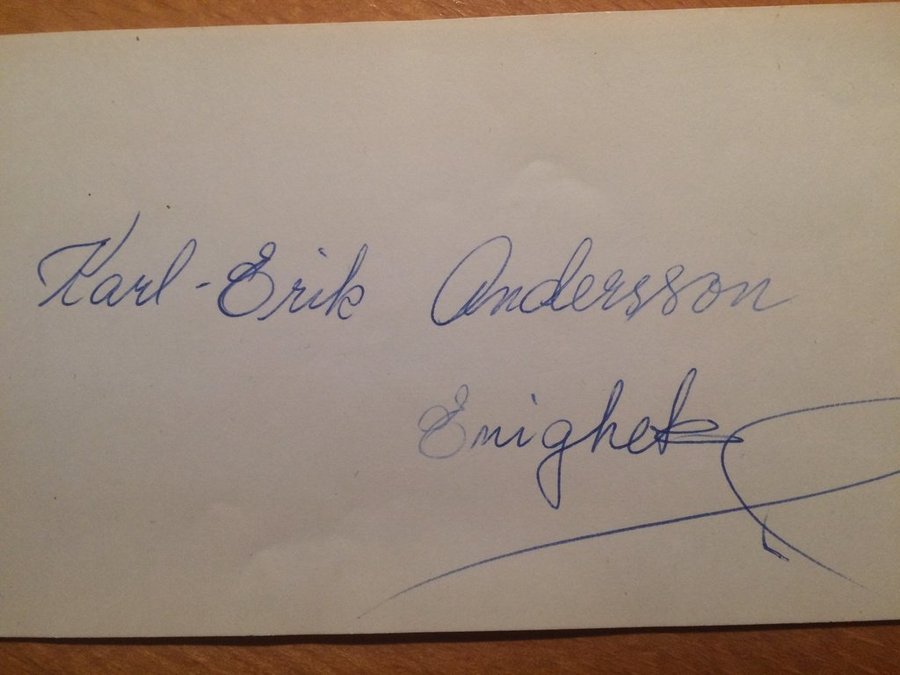 Karl-Erik Andersson
Enighet